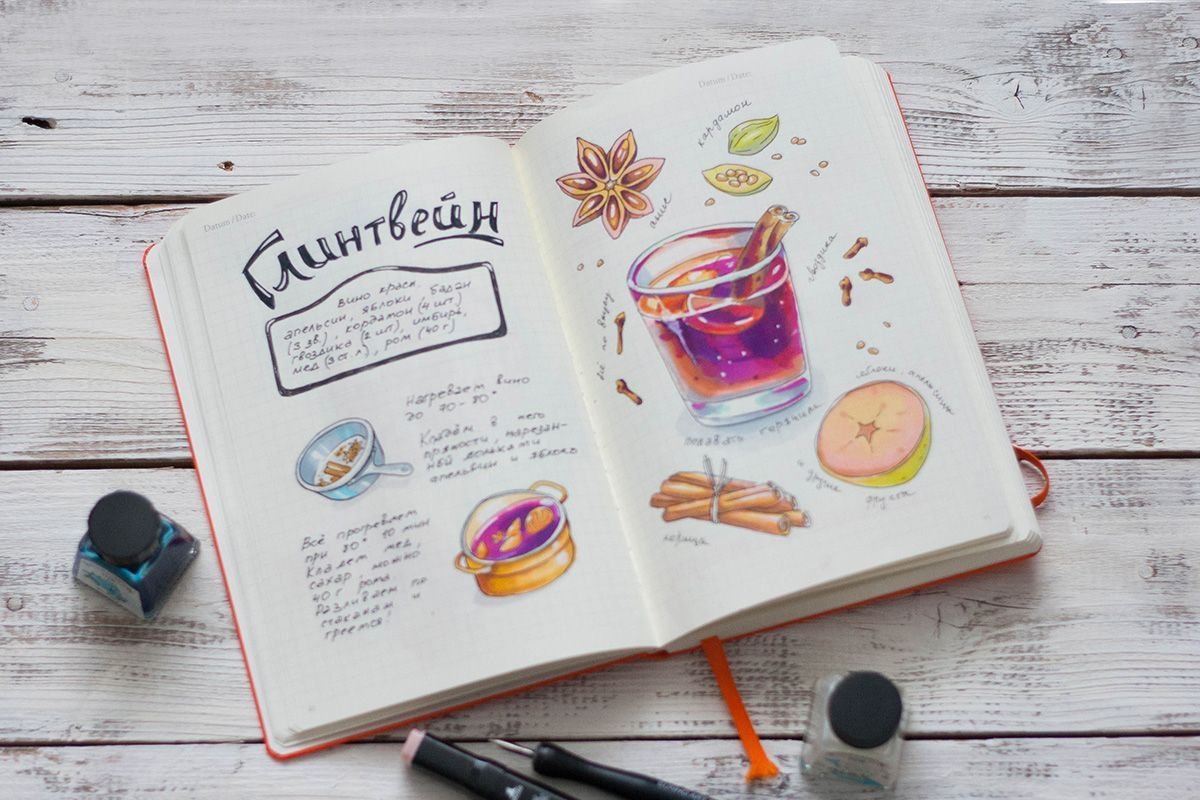 Datum / Date:
Глинтвейн
вино красн. бадан
апельсин, яблоки
(3 зв.), кордамон (4 шт.)
гвоздика (2 шт), имбирь,
мед (3 ст.л), ром (40 г)
Нагреваем вино
до 70-80°
Кладём в него
пряности, нарезан-
ной дольками
апельсин и яблоко
Всё прогреваем
при 80° 10 мин
Кладем мед,
сахар, можно
40 г рома.
Разливаем по
стаканам и
греемся!
Datum / Date:
кардамон
анис
гвоздика
всё по вкусу
яблоки, апельсины
подавать горячим
и другие
фрукты
корица